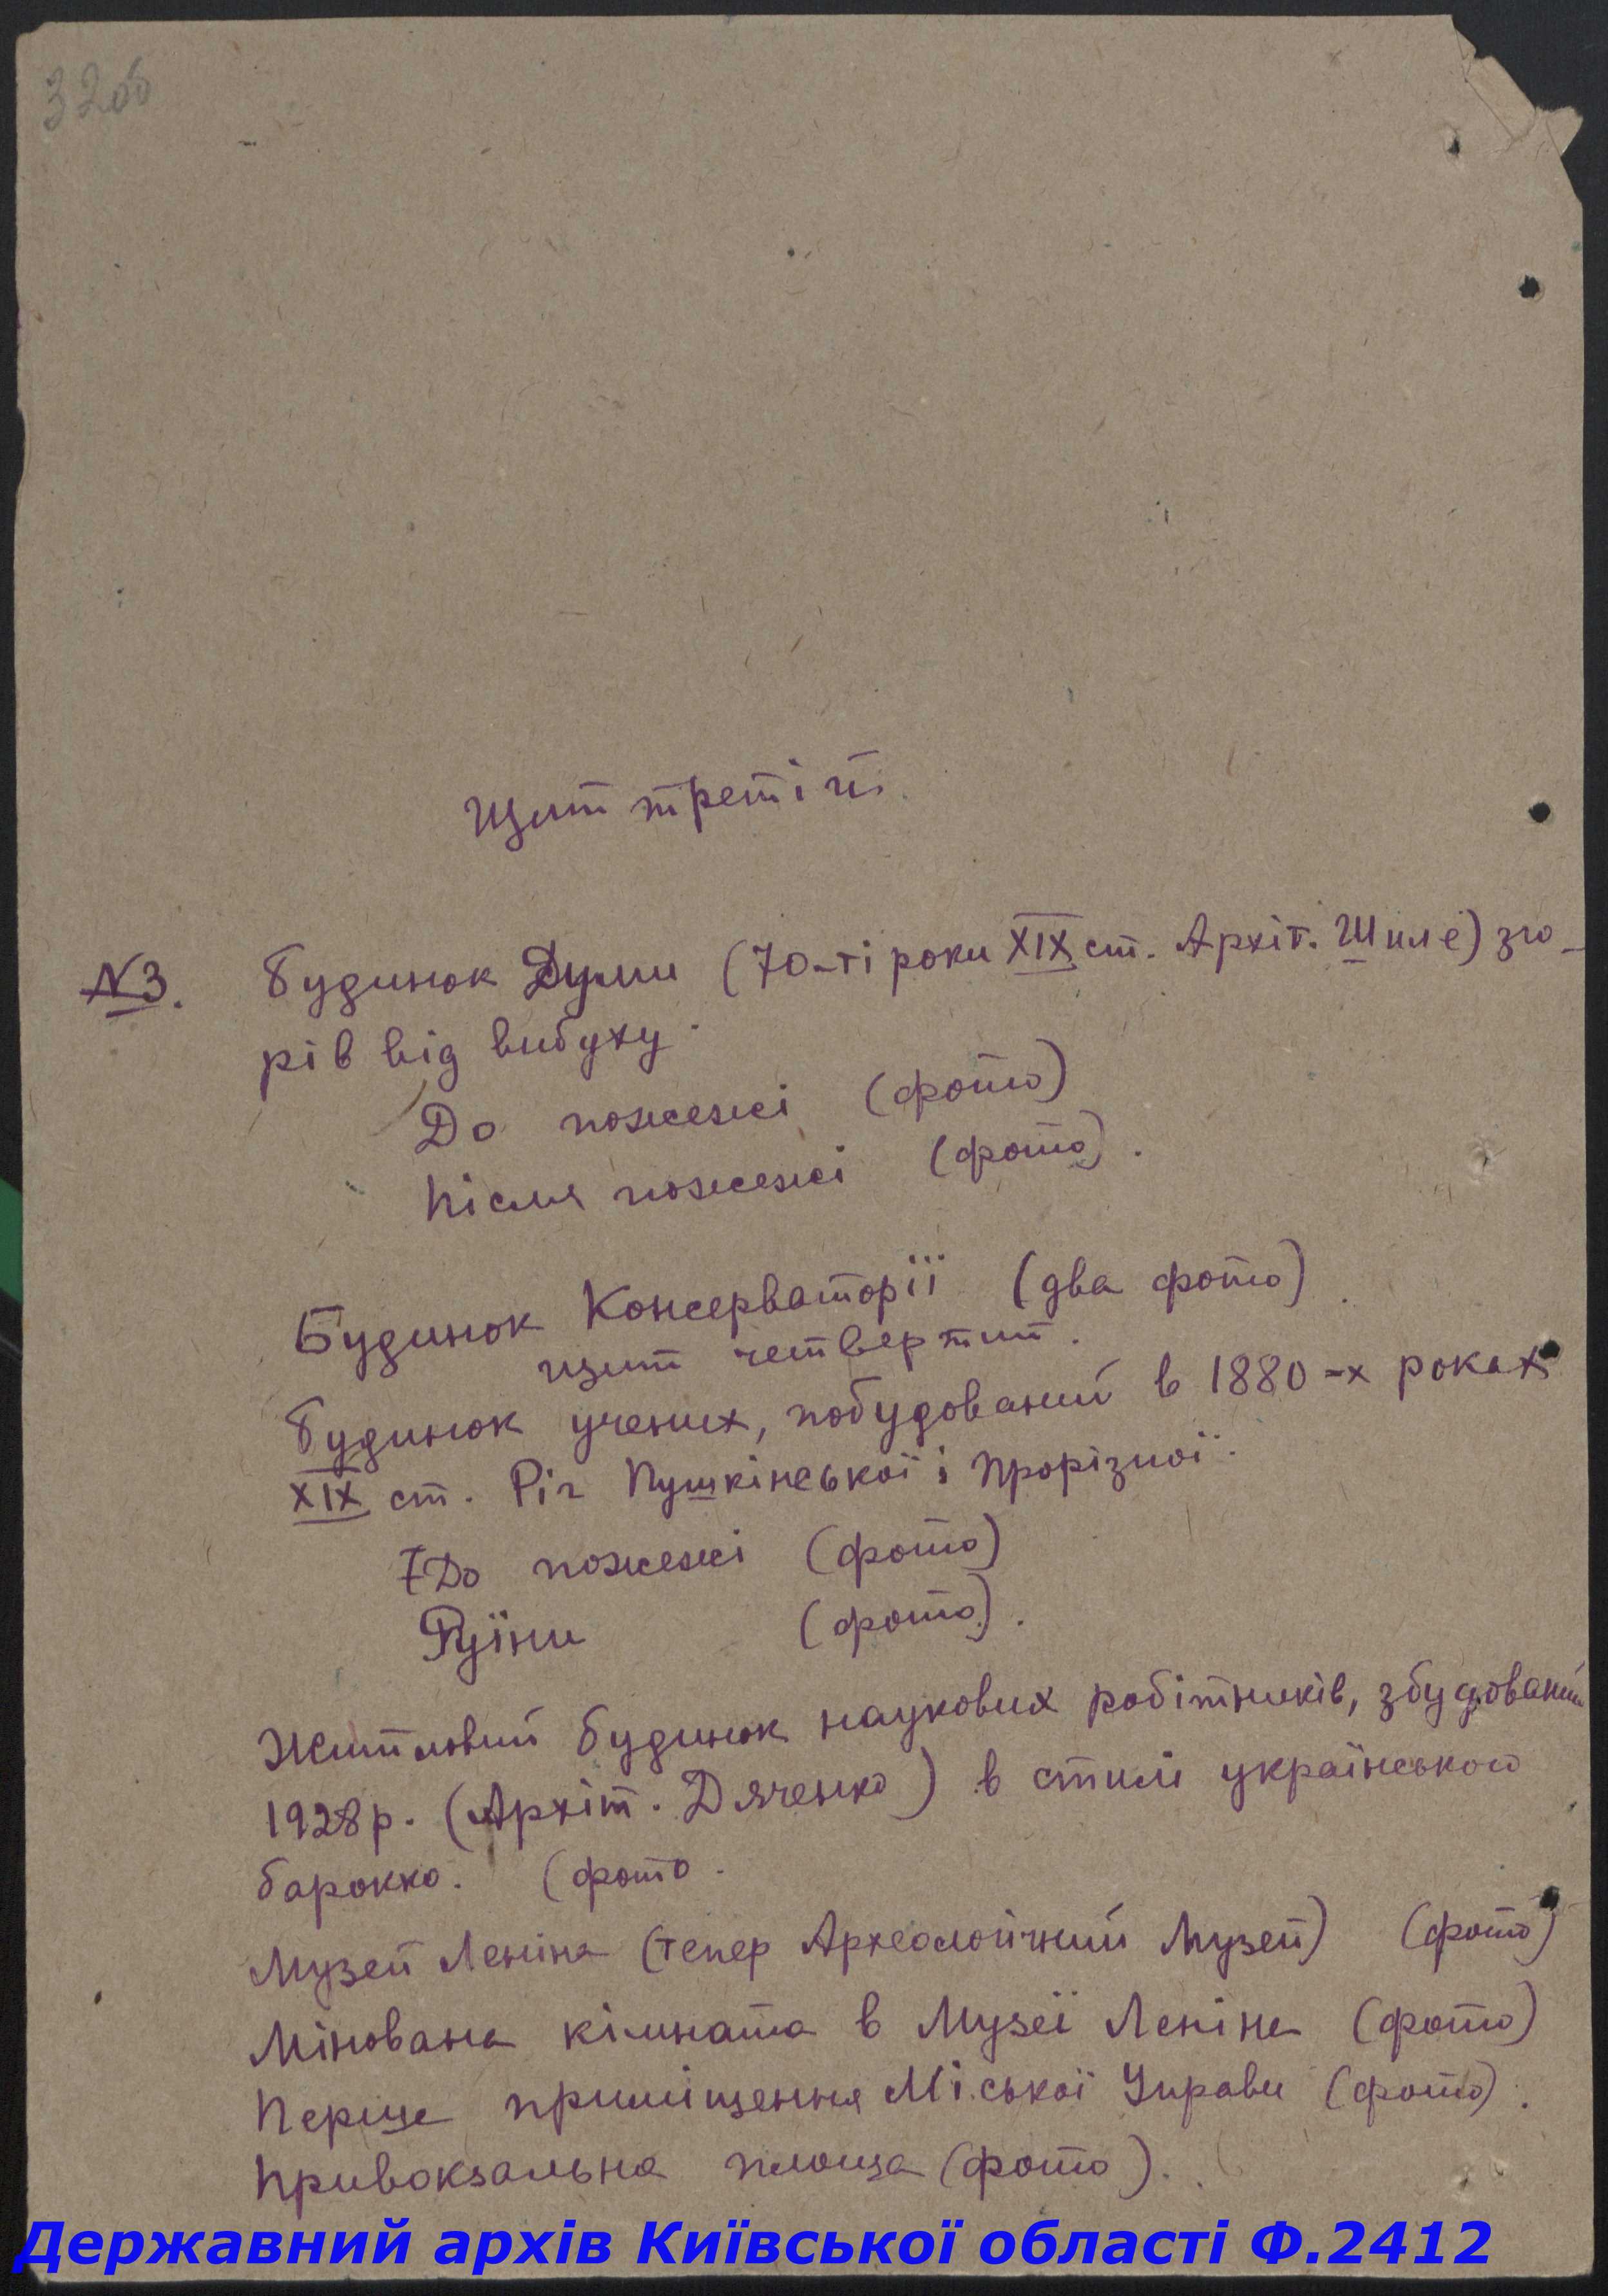 3206
Щит третій.
№3. Будинок Думи (70-ті роки XIX ст. Архіт. Шиле) зго-
рів від вибуху.
До пожежі (фото)
Після пожежі (фото).
Будинок Консерваторії (два фото).
щит четвертий.
Будинок учених, побудований в 1880-х роках
XIX ст. Ріг Пушкінської і Прорізної.
До пожежі (фото)
Руїни (фото).
Житловий будинок наукових робітників, збудований
1928 р. (Архіт. Дяченко) в стилі українського
барокко. (фото.
Музей Леніна (тепер Археологічний Музей) (фото)
Мінована кімната в Музеї Леніна (фото)
Перше приміщення Міської Управи (фото).
Привокзальна площа (фото).
Державний архів Київської області Ф.2412